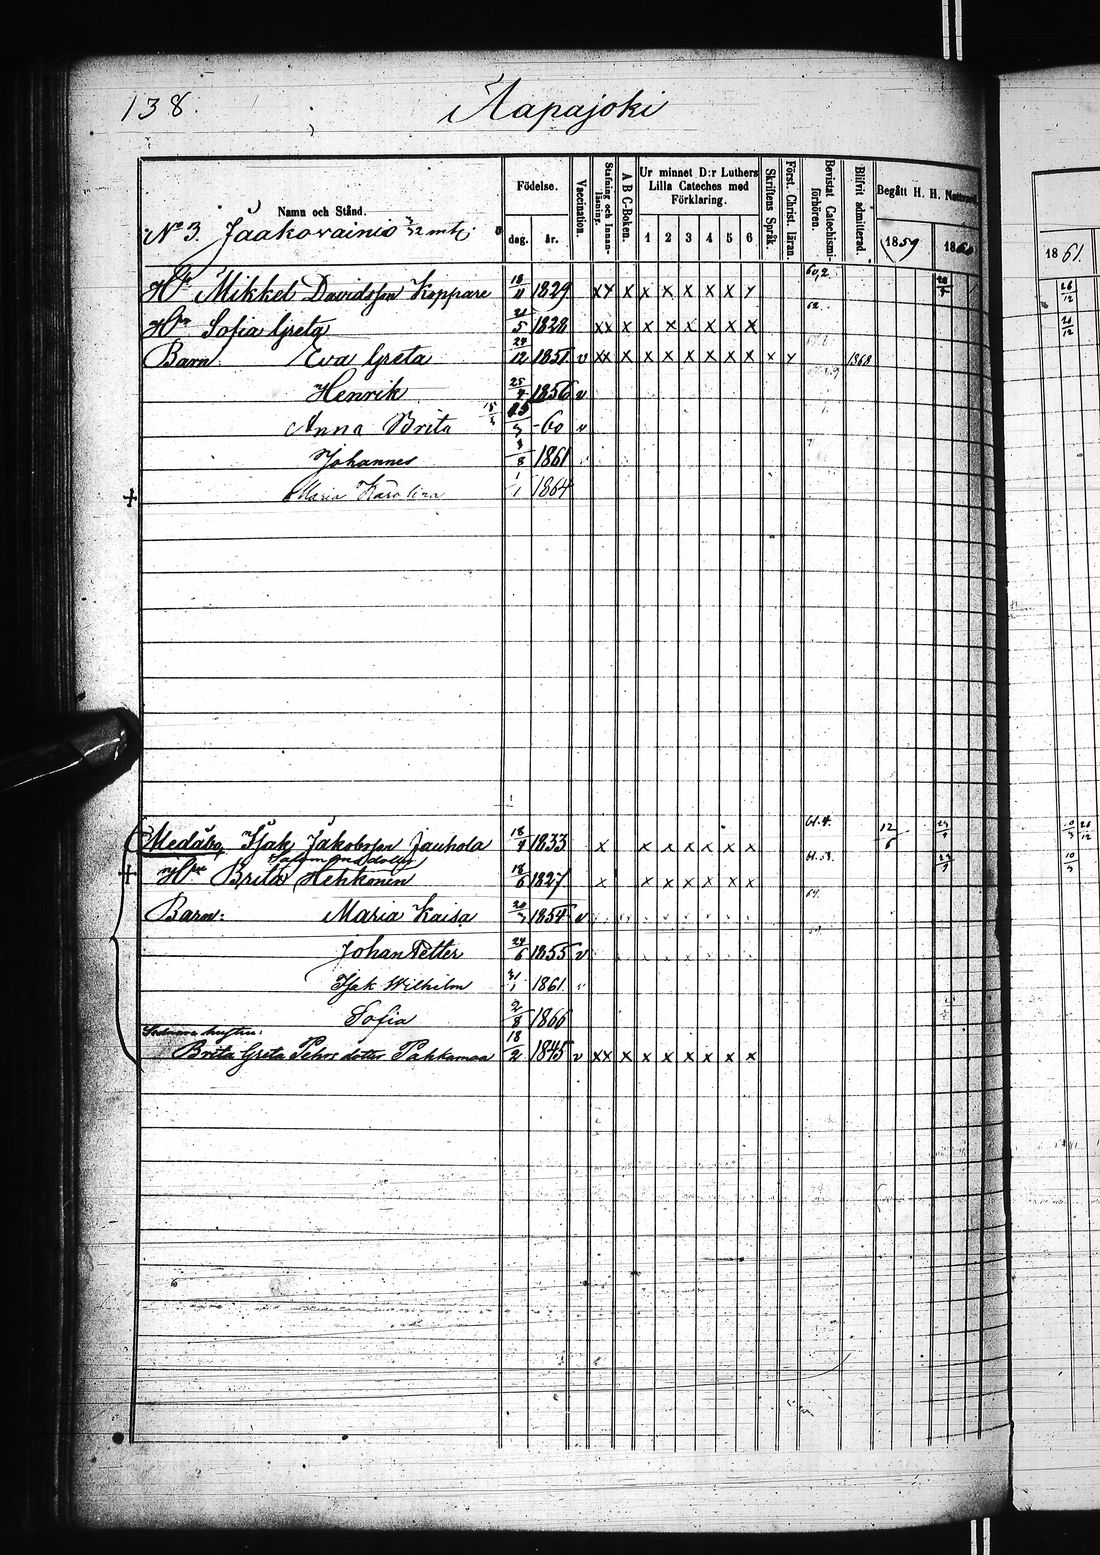 138.
Aapajoki
Namn och Stånd.
Födelse.
dag.
år.
Vaccination.
Stafning och Innan-läsning.
A B C-Boken.
Ur minnet D:r Luthers Lilla Cateches med Förklaring.
1 2 3 4 5 6
Skriftens Språk.
Först. Christ. läran.
Bevistat Catechismi-förhören.
Blifvit admitterad.
Begått H. H. Nattvard
1859
1860
1861.
No 3. Jaakovainio 7/32 mtl.
Hde Mikkel Davidsson Koppare 18/11 1829 xx x x x x x x x 28/12
Hu Sofia Greta 21/5 1828 xx x x x x x x x 62. 26/12
Barn Eva Greta 24/12 1851 v xx x x x x x x x x x 1868
Henrik 25/4 1856 v
Anna Brita 15/3 -60 v
Johannes 3/8 1861
Maria Karolina 1/1 1864
Medåbo, Isak Jakobsson Jauhola 18/4 1833 x x x x x x x 12/6 10/3 26/12
Salomonsdotter
Hu Brita Hehkonen 18/6 1827 x x x x x x x 10/3
Barn: Maria Kaisa 20/3 1854 v
Johan Petter 24/6 1855 v
Isak Wilhelm 31/1 1861
Sofia 2/8 1866
Sednare hustru:
Brita Greta Pehrsdotter Pahkamaa 18/2 1845 v xx x x x x x x x